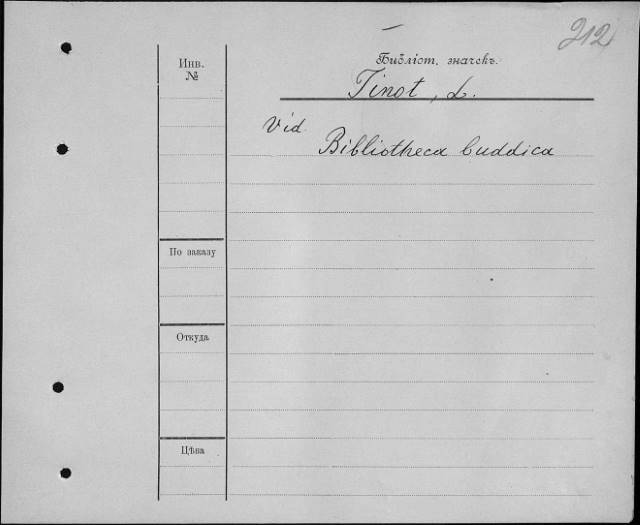 212
Библіот. значекъ.
Инв.
№
Tinot, L.
Vid
Bibliotheca buddica
По заказу
Откуда
Цѣна